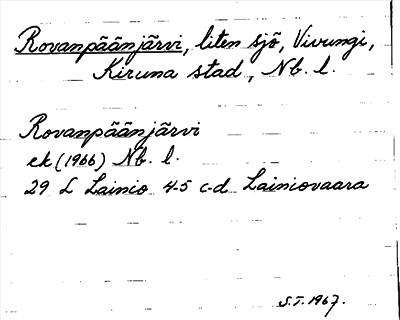 Rovanpäänjärvi, liten sjö, Vivungi,
Kiruna stad, Nb. l.
Rovanpäänjärvi
ek (1966) Nb. l.
29 L Lainio 4-5 c-d Lainiovaara
S.T. 1967.